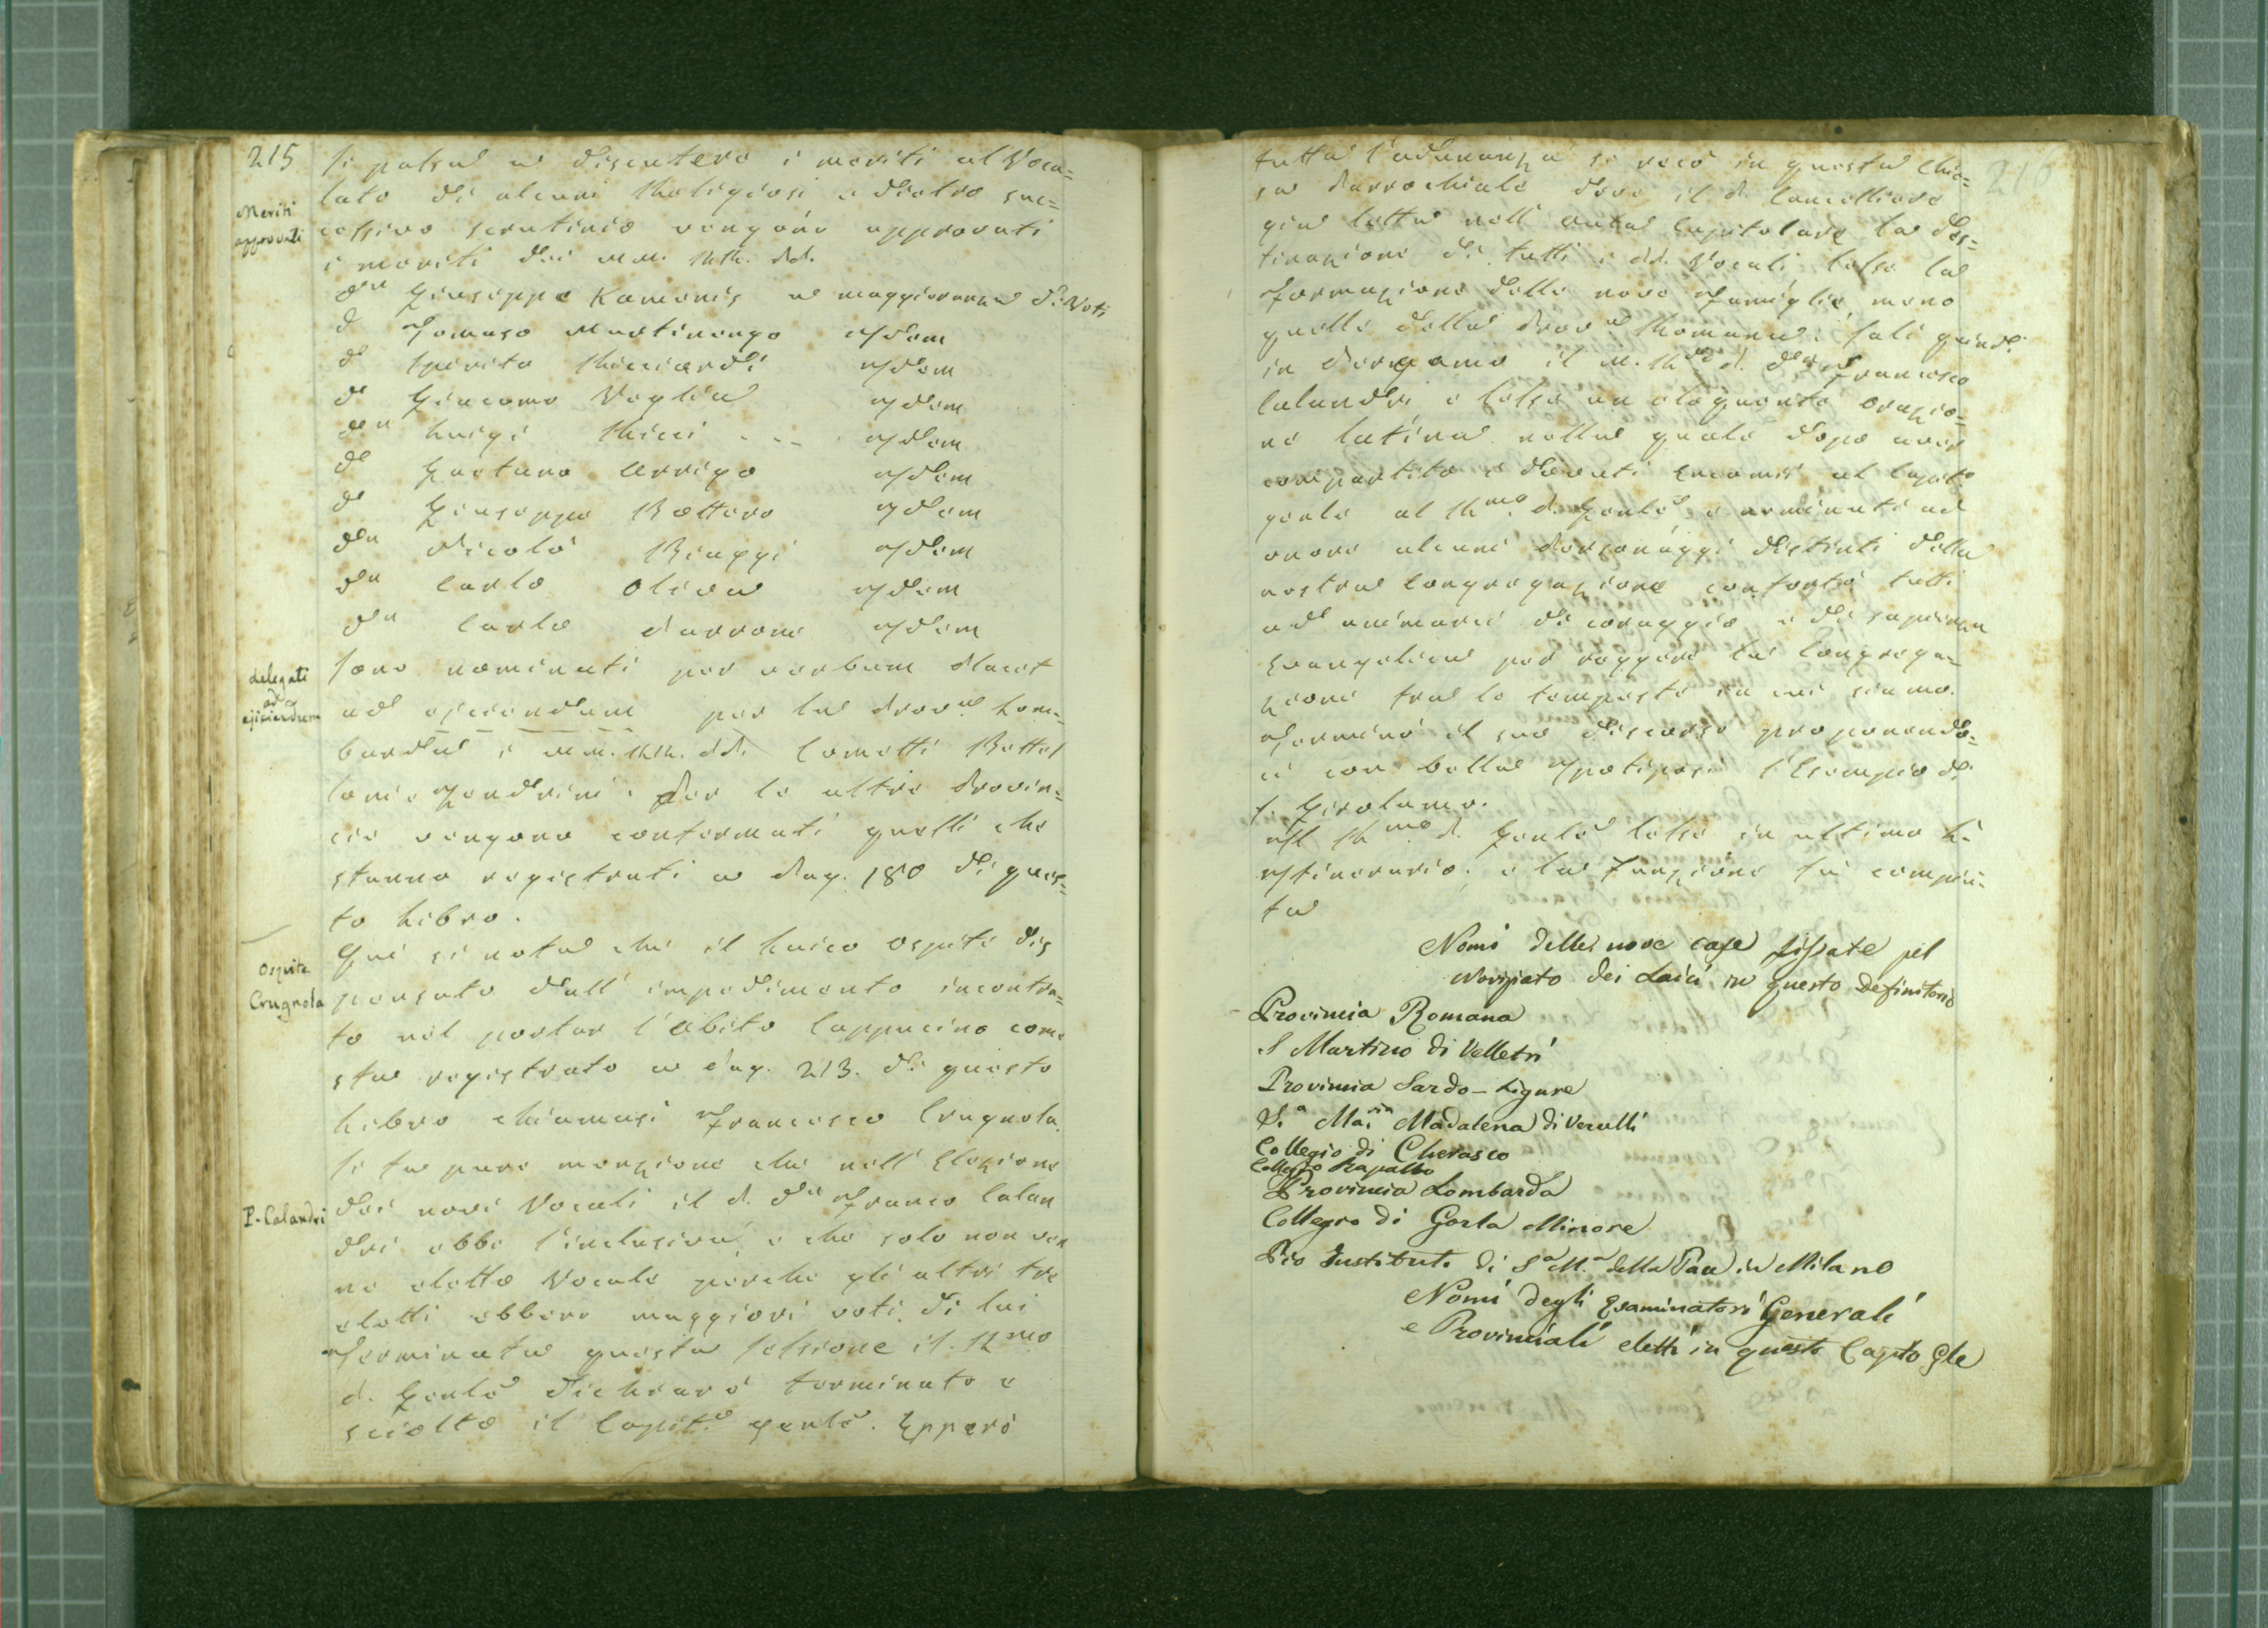 215
Si passa a discutere i meriti al Voca=
lato di alcuni Religiosi e dietro suc=
Meriti
approvati
cessivo scrutinio vengono approvati
i meriti dei MM. RR. PP.
Dn Giuseppe Kamenis a maggioranza di Voti
D Tomaso Martinengo Idem
D Spirito Ricciardi Idem
D Giacomo Veglia Idem
Dn Luigi Ricci - - - Idem
D Gaetano Arrigo Idem
D Giuseppe Bottero Idem
Dn Nicolò Biaggi Idem
Dn Carlo Oliva Idem
Dn Carlo Parrone Idem
delegati
ad
ejiciendum
Sono nominati per verbum Placet
ad ejiciendum per la Prova Lom=
barda i MM. RR. PP. Cometti Bettol
loni e Zendrini. Per le altre Provin=
cie vengono confermati quelli che
stanno registrati a Pag. 180 di ques=
to Libro.
Ospite
Crugnola
Qui si nota che il Laico Ospite dis
pensato dall' impedimento incontra=
to nel portar l'Abito Cappucino come
sta registrato a Pag. 213. di questo
Libro chiamasi Francesco Crugnola.
Si fa pure menzione che nell' Elezione
P. Calandri
dei novi Vocali il P. Dn Franco Calan
dri ebbe l'inclusiva, e che solo non ven
ne eletto Vocale perche gli altri tre
eletti ebbero maggiori voti di lui
Terminata questa Sessione il Rmo
P. Genle dichiarò terminato e
sciolto il Capit. genle. Epperò
216
tutta l'adunanza si recò in questa Chie=
sa Parrochiale dove il P. Cancelliere
gia letta nell' Aula Capitolare la Des=
tinazione di tutti i PP. Vocali, lesse la
Formazione delle nove Famiglie, meno
quelle della Prova Romana: salì quindi
in Pergamo il M. Rdo P. Dn Francesco
Calandri e lesse un eloquente Orazio=
ne latina nella quale dopo aver
compartito i dovuti Encomii al Capit.
genle al Rmo P. Genle, e nominati ad
onore alcuni Personaggi distinti della
nostra Congregazione confortò tutti
ad animarci di coraggio e di sapienza
Evangelica per reggere la Congrega=
zione fra le tempeste in cui siamo.
Terminò il suo discorso proponendo=
ci con bella Ipotiposi l'Esempio di
S. Girolamo.
Il Rmo P. Genle lesse in ultimo l'I=
tinerario, e la Funzione fu compiu=
ta
Nomi delle nove case fissate pel
Novizziato dei Laici in questo Definitorio
Provincia Romana
S Martino di Velletri
Provincia Sardo-Ligure
S.a Maria Madalena di Vercelli
Collegio di Cherasco
Collegio Rapallo
Provincia Lombarda
Collegio di Gorla Minore
Pio Instituto di Sa M.a della Pace in Milano
Nomi degli Esaminatori Generali
e Provinciali eletti in questo Capto Gle